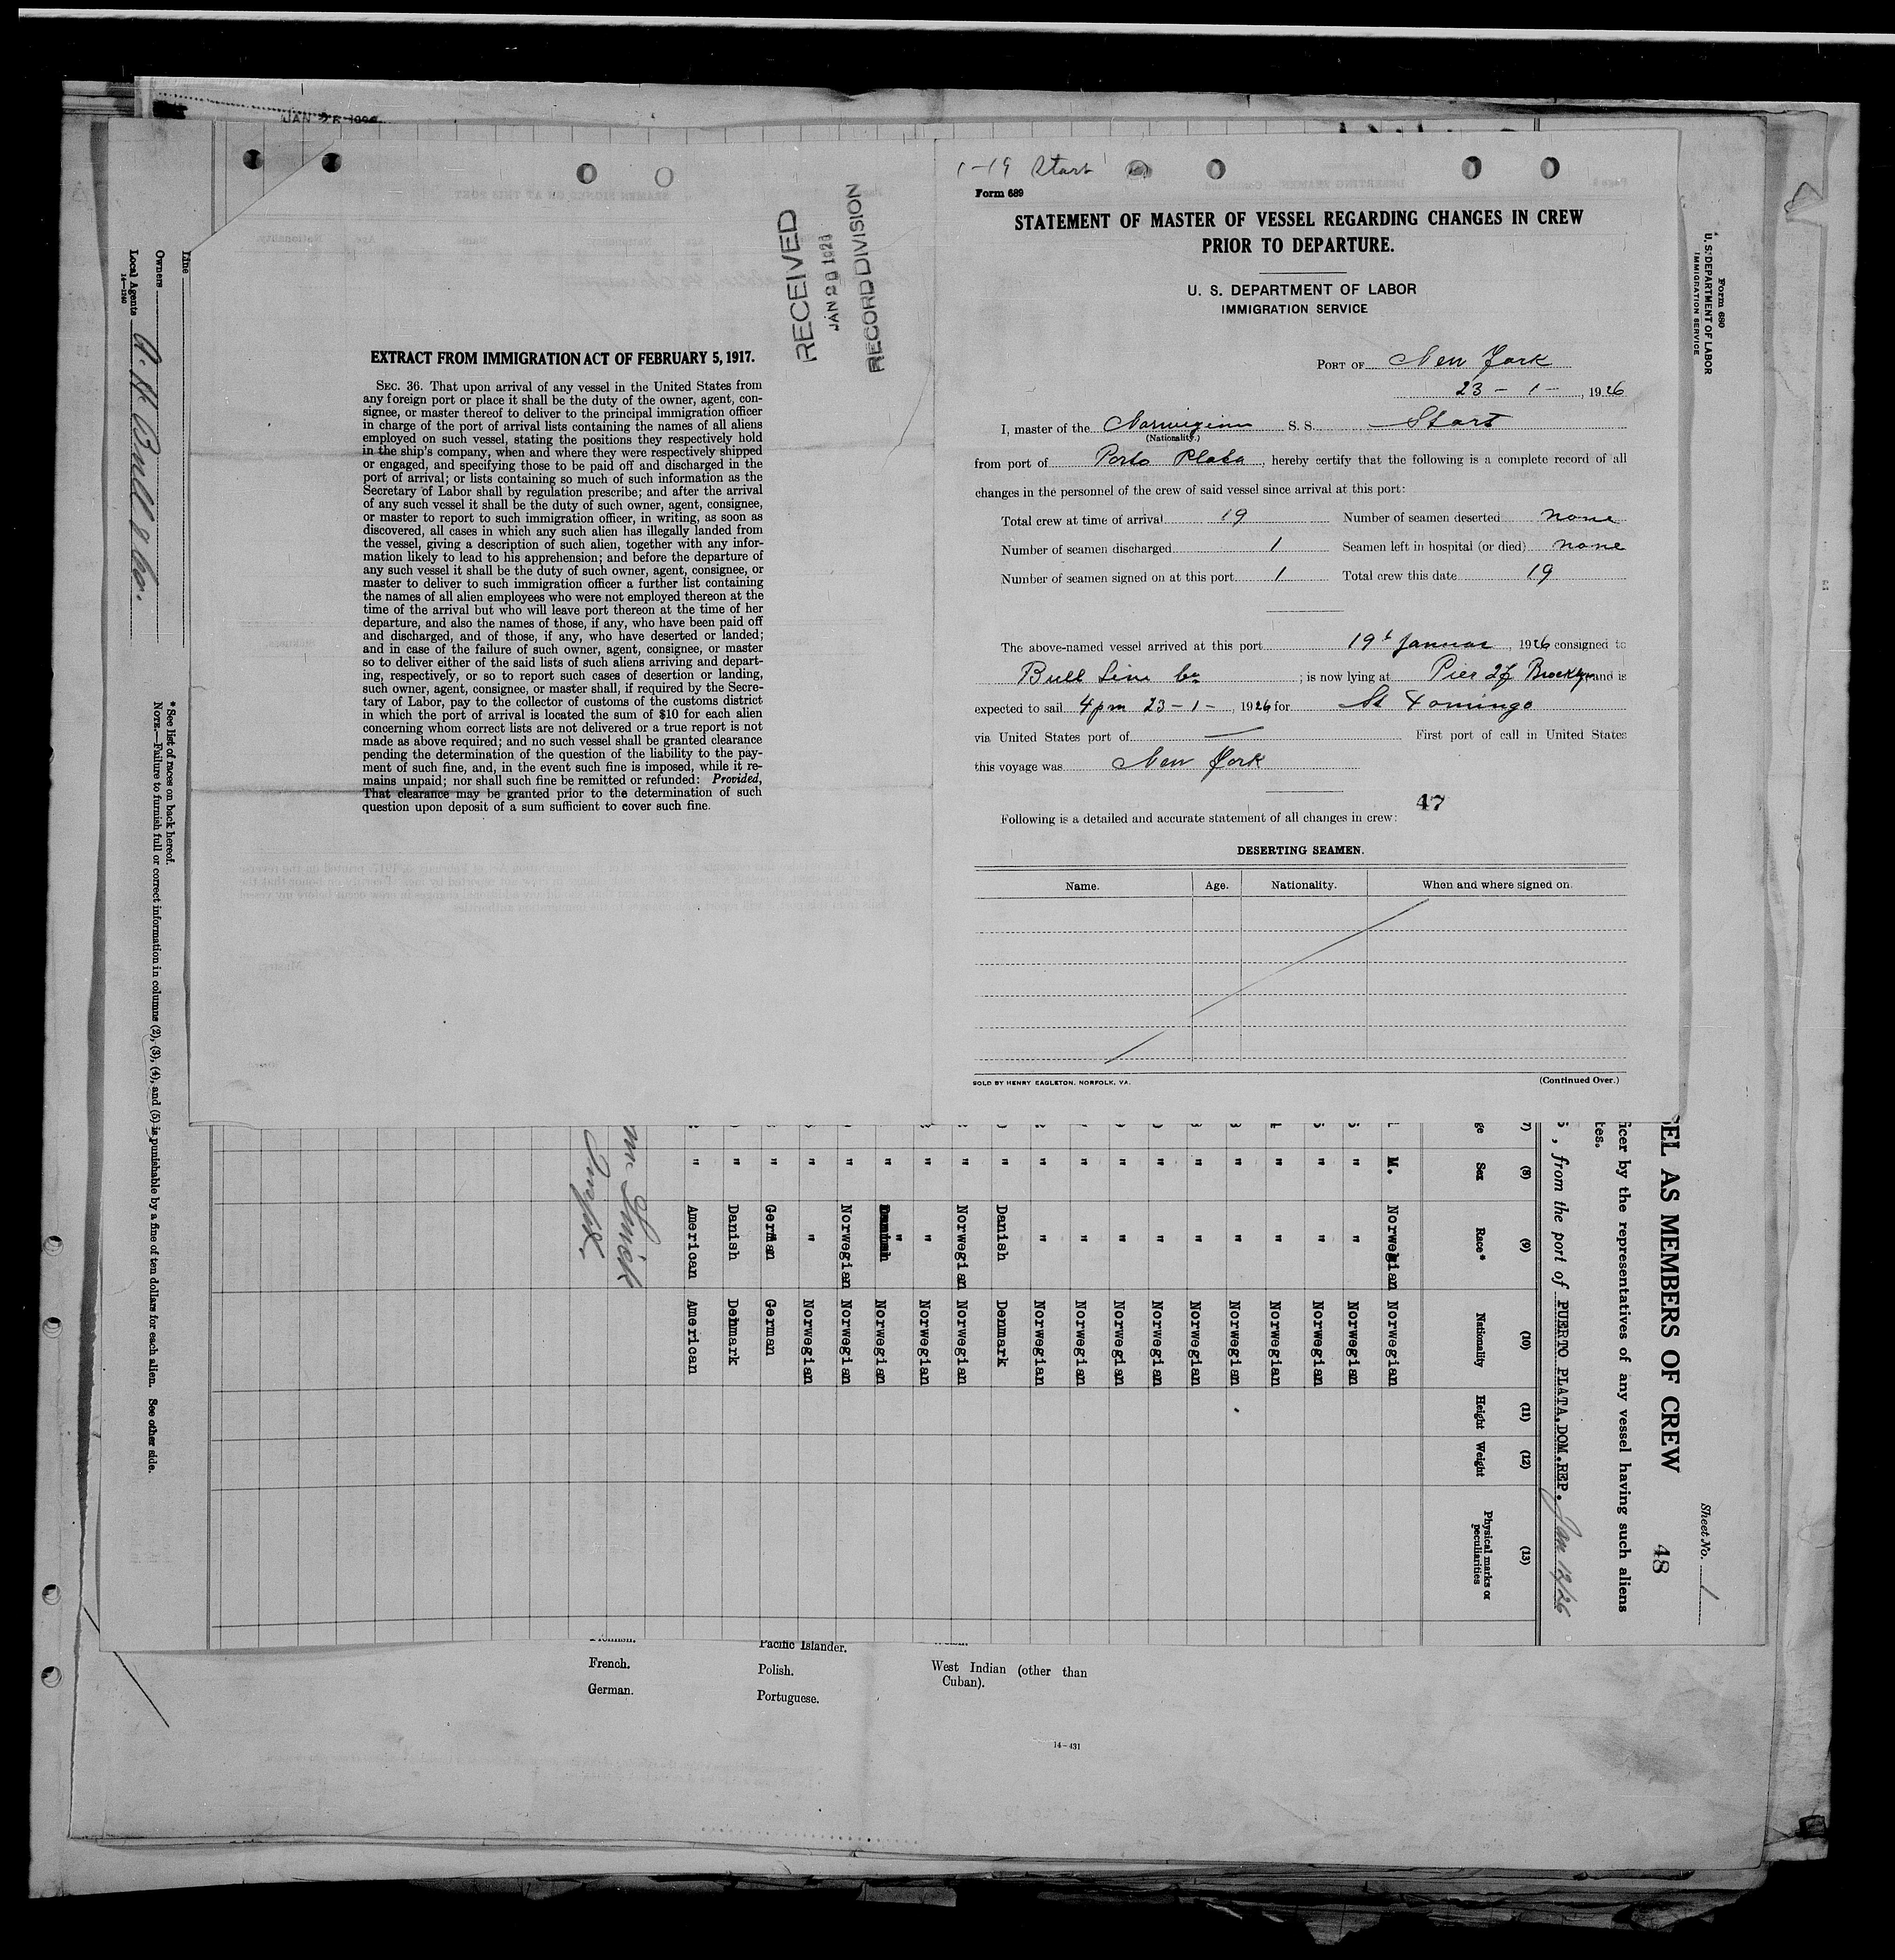 JAN 26 192
1-19 Start
Form 689
STATEMENT OF MASTER OF VESSEL REGARDING CHANGES IN CREW
PRIOR TO DEPARTURE.
U. S. DEPARTMENT OF LABOR
IMMIGRATION SERVICE
PORT OF New York
23 - 1 - , 1926
I, master of the Norwegian S. S. Start
(Nationality.)
from port of Porto Plata, hereby certify that the following is a complete record of all
changes in the personnel of the crew of said vessel since arrival at this port:
Total crew at time of arrival 19 Number of seamen deserted none
Number of seamen discharged 1 Seamen left in hospital (or died) none
Number of seamen signed on at this port 1 Total crew this date 19
The above-named vessel arrived at this port 19t Januar, 1926 consigned to
Bull Line Co ; is now lying at Pier 27 Brooklyn and is
expected to sail 4pm 23-1-, 1926 for St Domingo
via United States port of — First port of call in United States
this voyage was New York
47
Following is a detailed and accurate statement of all changes in crew:
DESERTING SEAMEN.
Name. Age. Nationality. When and where signed on.
SOLD BY HENRY EAGLETON, NORFOLK, VA. (Continued Over.)
RECEIVED
JAN 20 1926
RECORD DIVISION
EXTRACT FROM IMMIGRATION ACT OF FEBRUARY 5, 1917.
SEC. 36. That upon arrival of any vessel in the United States from
any foreign port or place it shall be the duty of the owner, agent, con-
signee, or master thereof to deliver to the principal immigration officer
in charge of the port of arrival lists containing the names of all aliens
employed on such vessel, stating the positions they respectively hold
in the ship's company, when and where they were respectively shipped
or engaged, and specifying those to be paid off and discharged in the
port of arrival; or lists containing so much of such information as the
Secretary of Labor shall by regulation prescribe; and after the arrival
of any such vessel it shall be the duty of such owner, agent, consignee,
or master to report to such immigration officer, in writing, as soon as
discovered, all cases in which any such alien has illegally landed from
the vessel, giving a description of such alien, together with any infor-
mation likely to lead to his apprehension; and before the departure of
any such vessel it shall be the duty of such owner, agent, consignee, or
master to deliver to such immigration officer a further list containing
the names of all alien employees who were not employed thereon at the
time of the arrival but who will leave port thereon at the time of her
departure, and also the names of those, if any, who have been paid off
and discharged, and of those, if any, who have deserted or landed;
and in case of the failure of such owner, agent, consignee, or master
so to deliver either of the said lists of such aliens arriving and depart-
ing, respectively, or so to report such cases of desertion or landing,
such owner, agent, consignee, or master shall, if required by the Secre-
tary of Labor, pay to the collector of customs of the customs district
in which the port of arrival is located the sum of $10 for each alien
concerning whom correct lists are not delivered or a true report is not
made as above required; and no such vessel shall be granted clearance
pending the determination of the question of the liability to the pay-
ment of such fine, and, in the event such fine is imposed, while it re-
mains unpaid; nor shall such fine be remitted or refunded: Provided,
That clearance may be granted prior to the determination of such
question upon deposit of a sum sufficient to cover such fine.
Form 680
U. S. DEPARTMENT OF LABOR
IMMIGRATION SERVICE
Sheet No. 1
SEL AS MEMBERS OF CREW 48
icer by the representatives of any vessel having such aliens
tes.
, from the port of PUERTO PLATA.DOM.REP. Jan 12/26
(7) (8) (9) (10) (11) (12) (13)
ge Sex Race* Nationality Height Weight Physical marks or
peculiarities
M. Norwegian Norwegian
" " Norwegian
" " Norwegian
" " Norwegian
" " Norwegian
" " Norwegian
" " Norwegian
" " Norwegian
" " Norwegian
" " Norwegian
" Danish Denmark
" Norwegian Norwegian
" " Norwegian
" " Norwegian
" Norwegian Norwegian
" " Norwegian
" German German
" Danish Denmark
" American American
Line
Owners
Local Agents A. H. Bull & Co.
14—1240
* See list of races on back hereof.
NOTE.—Failure to furnish full or correct information in columns (2), (3), (4), and (5) is punishable by a fine of ten dollars for each alien. See other side.
French.
German.
Pacific Islander.
Polish.
Portuguese.
West Indian (other than
Cuban).
14-431